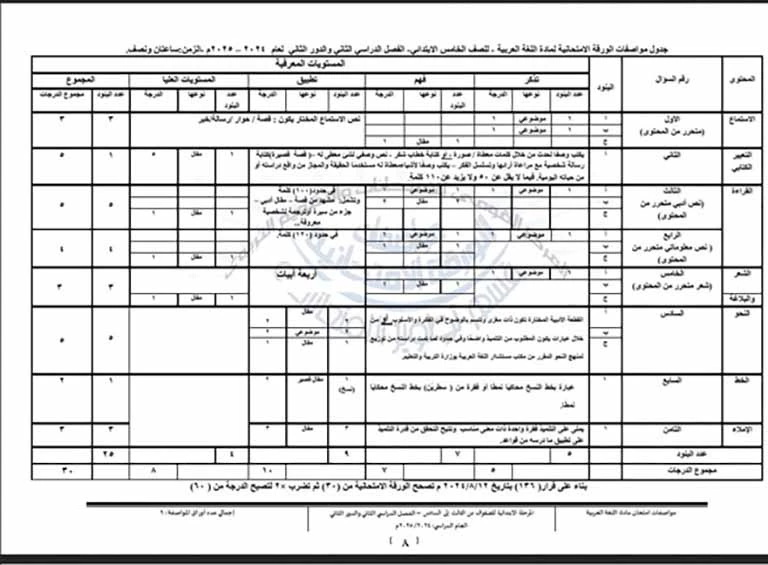 جدول مواصفات الورقة الامتحانية لمادة اللغة العربية - للصف الخامس الابتدائي- الفصل الدراسي الثاني والدور الثاني لعام ٢٠٢٤ – ٢٠٢٥م -الزمن:ساعتان ونصف.
المحتوى رقم السؤال البنود المستويات المعرفية
تذكر فهم تطبيق المستويات العليا المجموع
عدد البنود نوعها الدرجة عدد البنود نوعها الدرجة عدد البنود نوعها الدرجة عدد البنود نوعها الدرجة عدد البنود مجموع الدرجات
الاستماع الأول (متحرر من المحتوى) أ ١ موضوعي ١ نص الاستماع المختار يكون : قصة / حوار /رسالة/خبر ٣ ٣
ب ١ موضوعي ١
ج ١ مقال ١
التعبير الكتابي الثاني ١ يكتب وصفا لحدث من خلال كلمات معطاة / صورة / أو كتابة خطاب شكر - نص وصفي لشيء معطى له -( قصة قصيرة)كتابة ١ مقال ٥ ١ ٥
رسالة شخصية مع مراعاة آرائها وتسلسل الفكر – يكتب وصفا لأشياء معطاة له مستخدما الحقيقة والمجاز من واقع دراسته أو
من حياته اليومية. فيما لا يقل عن ٥٠ ولا يزيد عن ١١٠ كلمة.
القراءة الثالث (نص أدبي متحرر من المحتوى) أ ١ موضوعي ١ ١ موضوعي ١ في حدود(١٠٠) كلمة ٥ ٥
ب ٢ مقال ٢ وتشمل: مشهد من قصة – مقال أدبي –
جزء من سيرة أوترجمة لشخصية
معروفة...
ج ١ مقال ١
الرابع ( نص معلوماتي متحرر من المحتوى) أ ١ موضوعي ١ ١ موضوعي ١ في حدود (١٢٠) كلمة. ٤ ٤
ب ١ مقال ١
ج ١ مقال ١
الشعر والبلاغة الخامس (شعر متحرر من المحتوى) أ ١ موضوعي ١ أربعة أبيات ٣ ٣
ب ١ مقال ١
ج ١ مقال ١
النحو السادس أ القطعة الأدبية المختارة تكون ذات مغزى وتتسم بالوضوح في الفكرة والأسلوب أو من ٢ مقال ٢ ٥ ٥
ب خلال عبارات يكون المطلوب من التلميذ واضحا وفي حدود لما تمت دراسته من توزيع ٢ موضوعي ٢
ج لمنهج النحو المقرر من مكتب مستشار اللغة العربية بوزارة التربية والتعليم. ١ مقال ١
الخط السابع ١ عبارة بخط النسخ محاكيا نمطا أو فقرة من ( سطرين) بخط النسخ محاكيا ١ (نسخ) مقال قصير ٢ ١ ٢
نمطا.
الإملاء الثامن ١ يملى على التلميذ فقرة واحدة ذات معنى مناسب وتتيح التحقق من قدرة التلميذ ٣ مقال ٣ ٣ ٣
على تطبيق ما درسه من قواعد.
عدد البنود ٥ ٧ ٩ ٤ ٢٥
مجموع الدرجات ٥ ٧ ١٠ ٨ ٣٠
بناء على قرار( ١٣٦) بتاريخ ٢٠٢٤/٨/١٢ م تصحح الورقة الامتحانية من (٣٠) ثم تضرب ×٢ لتصبح الدرجة من ( ٦٠)
مواصفات امتحان مادة اللغة العربية
المرحلة الابتدائية للصفوف من الثالث إلى السادس – الفصل الدراسي الثاني والدور الثاني
العام الدراسي: ٢٠٢٤/ ٢٠٢٥م
إجمالي عدد أوراق المواصفة: ٦
[ ٨ ]